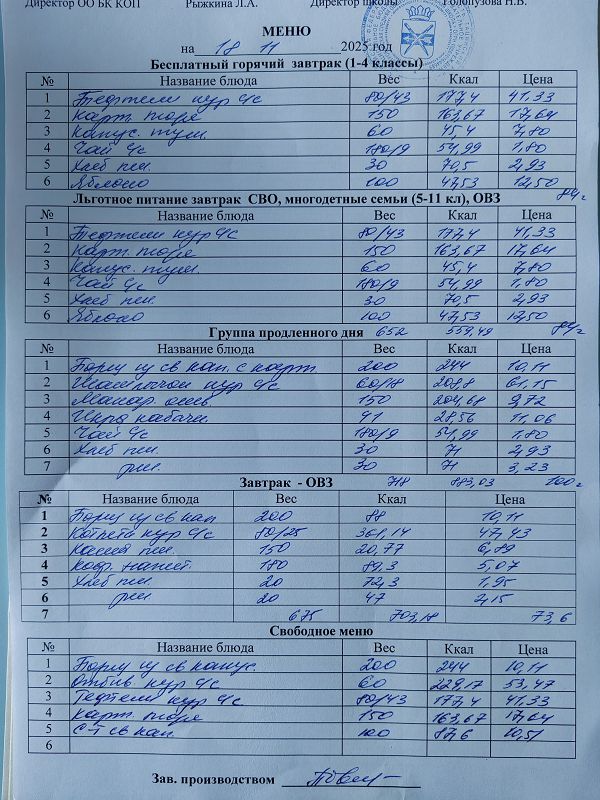 Директор ОО БК КОП Рыжкина Л.А. Директор школы Голопузова Н.В.
МЕНЮ
на 18 11 2025 год
Бесплатный горячий завтрак (1-4 классы)
№ Название блюда Вес Ккал Цена
1 Тефтели кур ч/с 80/43 177,4 41,33
2 Карт. пюре 150 163,67 17,64
3 Капус. туш. 60 45,4 7,80
4 Чай ч/с 180/9 54,99 1,80
5 Хлеб пш. 30 70,5 2,93
6 Яблоко 100 47,53 12,50
Льготное питание завтрак СВО, многодетные семьи (5-11 кл), ОВЗ 84,-
№ Название блюда Вес Ккал Цена
1 Тефтели кур ч/с 80/43 177,4 41,33
2 Карт. пюре 150 163,67 17,64
3 Капус. туш. 60 45,4 7,80
4 Чай ч/с 180/9 54,99 1,80
5 Хлеб пш. 30 70,5 2,93
6 Яблоко 100 47,53 12,50
Группа продленного дня 652 559,49 84,-
№ Название блюда Вес Ккал Цена
1 Борщ из св кап. с карт 200 244 10,11
2 кур ч/с 60/18 208,8 61,15
3 Макар. отв. 150 204,68 9,72
4 Икра кабачк. 91 28,56 11,06
5 Чай ч/с 180/9 54,99 1,80
6 Хлеб пш. 30 71 2,93
7 рж. 30 71 3,23
Завтрак - ОВЗ 718 883,03 100,-
№ Название блюда Вес Ккал Цена
1 Борщ из св кап 200 88 10,11
2 Котлети кур ч/с 80/25 361,14 47,43
3 пш. 150 20,77 6,89
4 Коф. напит. 180 89,3 5,07
5 Хлеб пш. 20 72,3 1,95
6 рж 20 47 2,15
7 675 703,18 73,6
Свободное меню
№ Название блюда Вес Ккал Цена
1 Борщ из св капус. 200 244 10,11
2 Отбив кур ч/с 60 229,17 53,47
3 Тефтели кур ч/с 80/43 177,4 41,33
4 Карт. пюре 150 163,67 17,64
5 С-т св кап. 100 87,6 10,51
6
Зав. производством